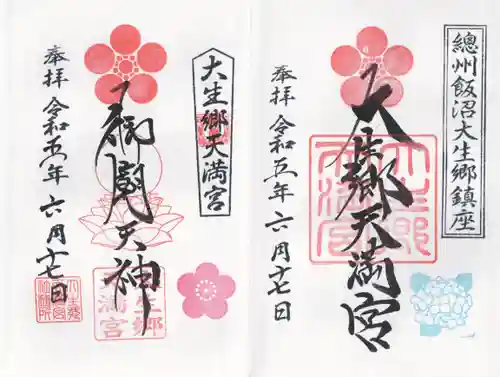 總州飯沼大生郷鎮座
大生郷天満宮
奉拝 令和五年 六月十七日
大生郷天満宮
大生郷天満宮
天神
奉拝 令和五年 六月十七日
生郷
満宮